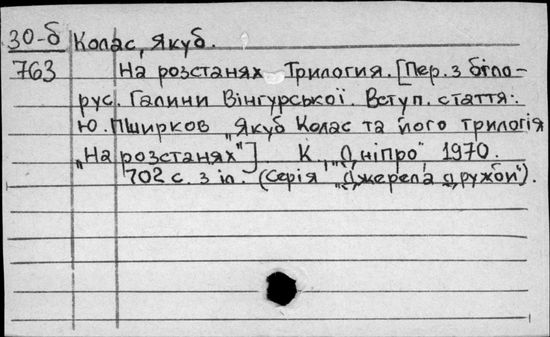 30-б Колас, Якуб.
763 На розстанях Трилогия. [Пер. з біло-
рус. Галини Вінгурської. Вступ. стаття:
Ю. Пширков „Якуб Колас та його трилогія
„На розстанях"] К., „Дніпро", 1970.
702 с. з іл. (Серія „Джерела дружби").